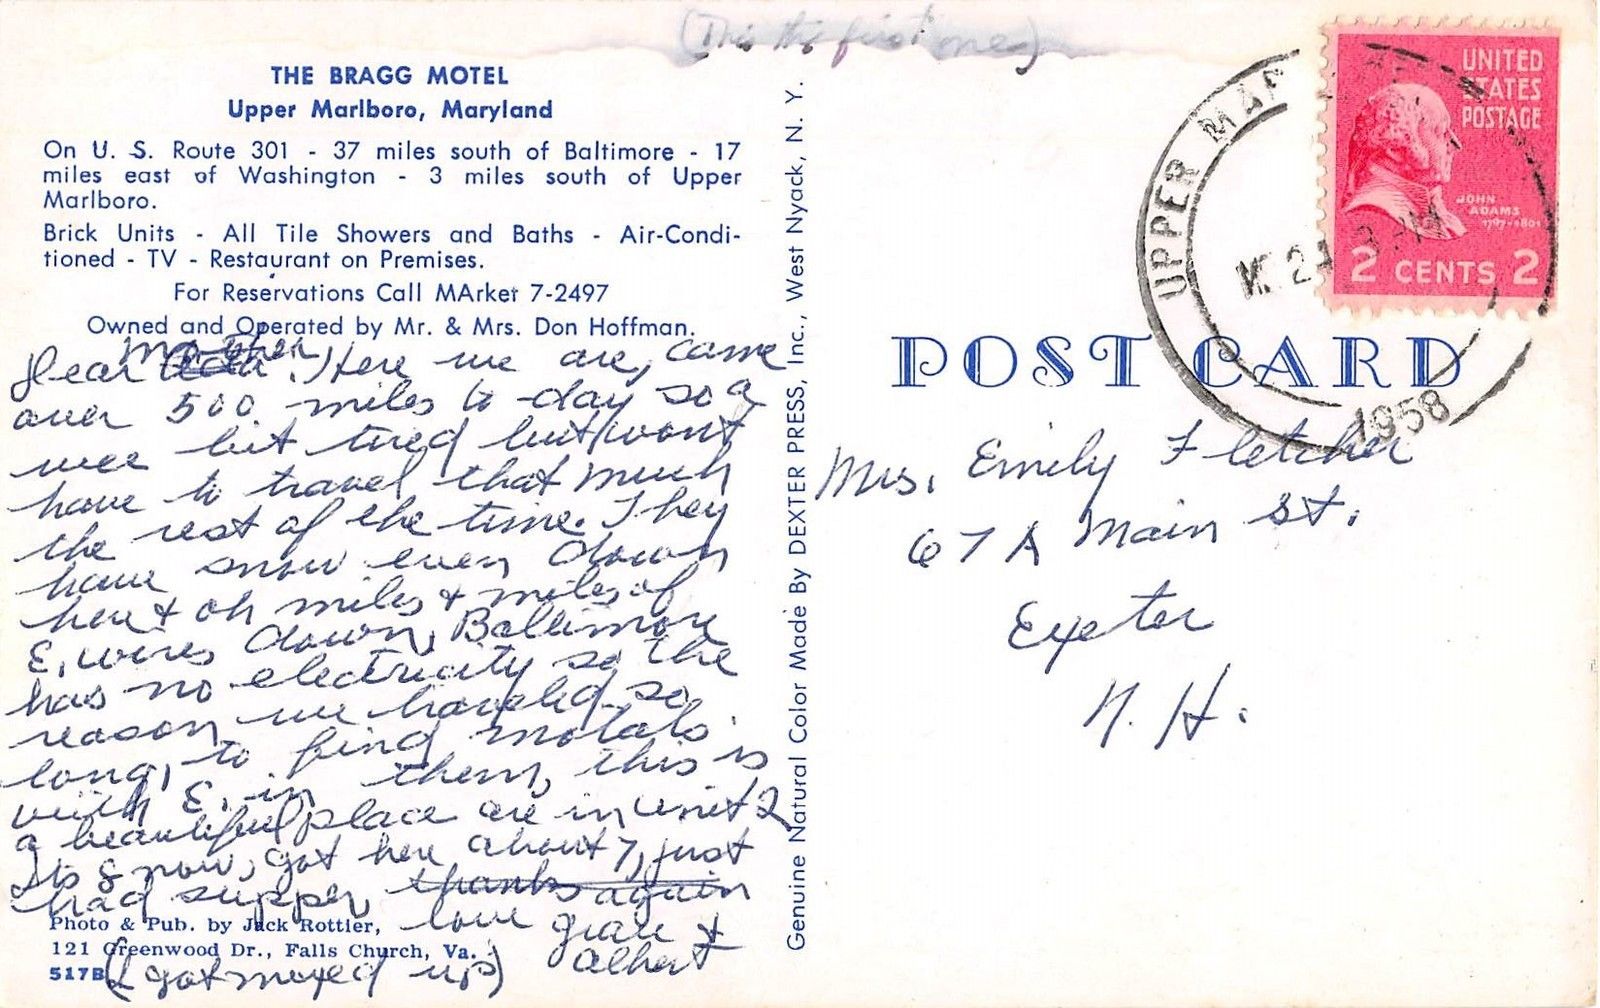 (This the first one)
THE BRAGG MOTEL
Upper Marlboro, Maryland
On U. S. Route 301 - 37 miles south of Baltimore - 17
miles east of Washington - 3 miles south of Upper
Marlboro.
Brick Units - All Tile Showers and Baths - Air-Condi-
tioned - TV - Restaurant on Premises.
For Reservations Call MArket 7-2497
Owned and Operated by Mr. & Mrs. Don Hoffman.
Mother
Dear Here we are, came
over 500 miles to day so a
wee bit tired but wont
have to travel that much
the rest of the time. They
have snow even down
here & oh miles & miles of
E. wires down, Baltimore
has no electricity so the
reason we traveled so
long, to find motals
with E. in them, this is
a beautiful place are in unit 2
Its 8 now, got here about 7, just
had supper thanks again
love Grace &
Albert
(I got moxed up)
Photo & Pub. by Jack Rottier,
121 Greenwood Dr., Falls Church, Va.
517B
Genuine Natural Color Made By DEXTER PRESS, Inc., West Nyack, N. Y.
UNITED
STATES
POSTAGE
JOHN
ADAMS
1797-1801
2 CENTS 2
UPPER MAR
1958
POST CARD
Mrs. Emily Fletcher
67 A Main St.
Exeter
N. H.